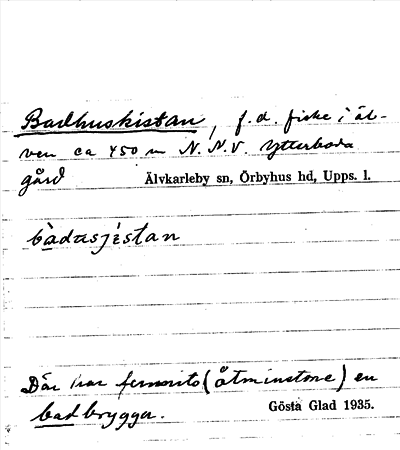 Badhuskistan, f.d. fiske i äl-
ven ca 450 m N.N.V. Ytterboda
gård Älvkarleby sn, Örbyhus hd, Upps. l.
bàdusjèstan
Där har funnits (åtminstone) en
badbrygga. Gösta Glad 1935.